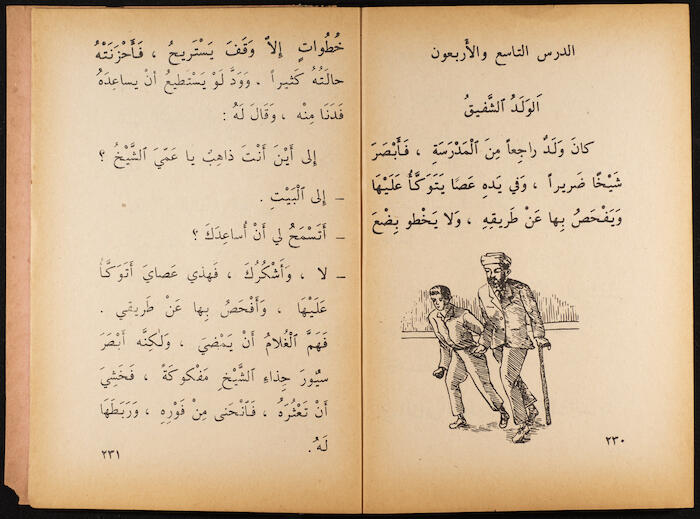 الدرس التاسع والأربعون
اَلوَلَدُ ٱلشَّفيقُ
كانَ وَلَدٌ راجِعاً مِنَ ٱلْمَدْرَسَةِ ، فَأَبْصَرَ
شَيْخًا ضَريراً ، وَفي يَدِهِ عَصًا يَتَوَكَّأُ عَلَيْهَا
وَيَفْحَصُ بِها عَنْ طَريقِهِ ، وَلا يَخْطو بِضْعَ
٢٣٠
خُطُواتٍ إِلاّ وَقَفَ يَسْتَريحُ ، فَأَحْزَنَتْهُ
حالَتُهُ كَثيراً . وَوَدَّ لَوْ يَسْتَطيعُ أنْ يساعِدَهُ
فَدَنَا مِنْه ، وَقَالَ لَهُ :
إِلى أَيْنَ أَنْتَ ذاهِبٌ يا عَمّيَ ٱلشَّيْخُ ؟
ـ إِلى ٱلْبَيْتِ .
ـ أَتَسْمَحُ لي أَنْ أُساعِدَكَ ؟
ـ لا ، وَأَشْكُرُكَ ، فَهذي عَصايَ أَتَوَكَّأُ
عَلَيْهَا ، وَأَفْحَصُ بِها عَنْ طَريقي .
فَهَمَّ ٱلْغُلامُ أَنْ يَمْضِيَ ، وَلٰكِنَّه أَبْصَرَ
سيُورَ حِذاءِ ٱلشَّيْخِ مَفْكوكَةً ، فَخَشِيَ
أَنْ تَعْثُرَهُ ، فَٱنْحَنى مِنْ فَوْرِهِ ، وَرَبَطَهَا
لَهُ .
٢٣١